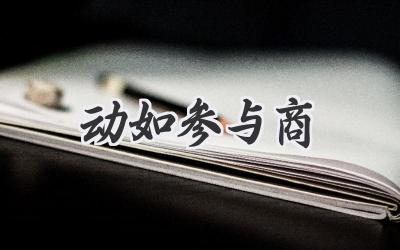 动如参与商